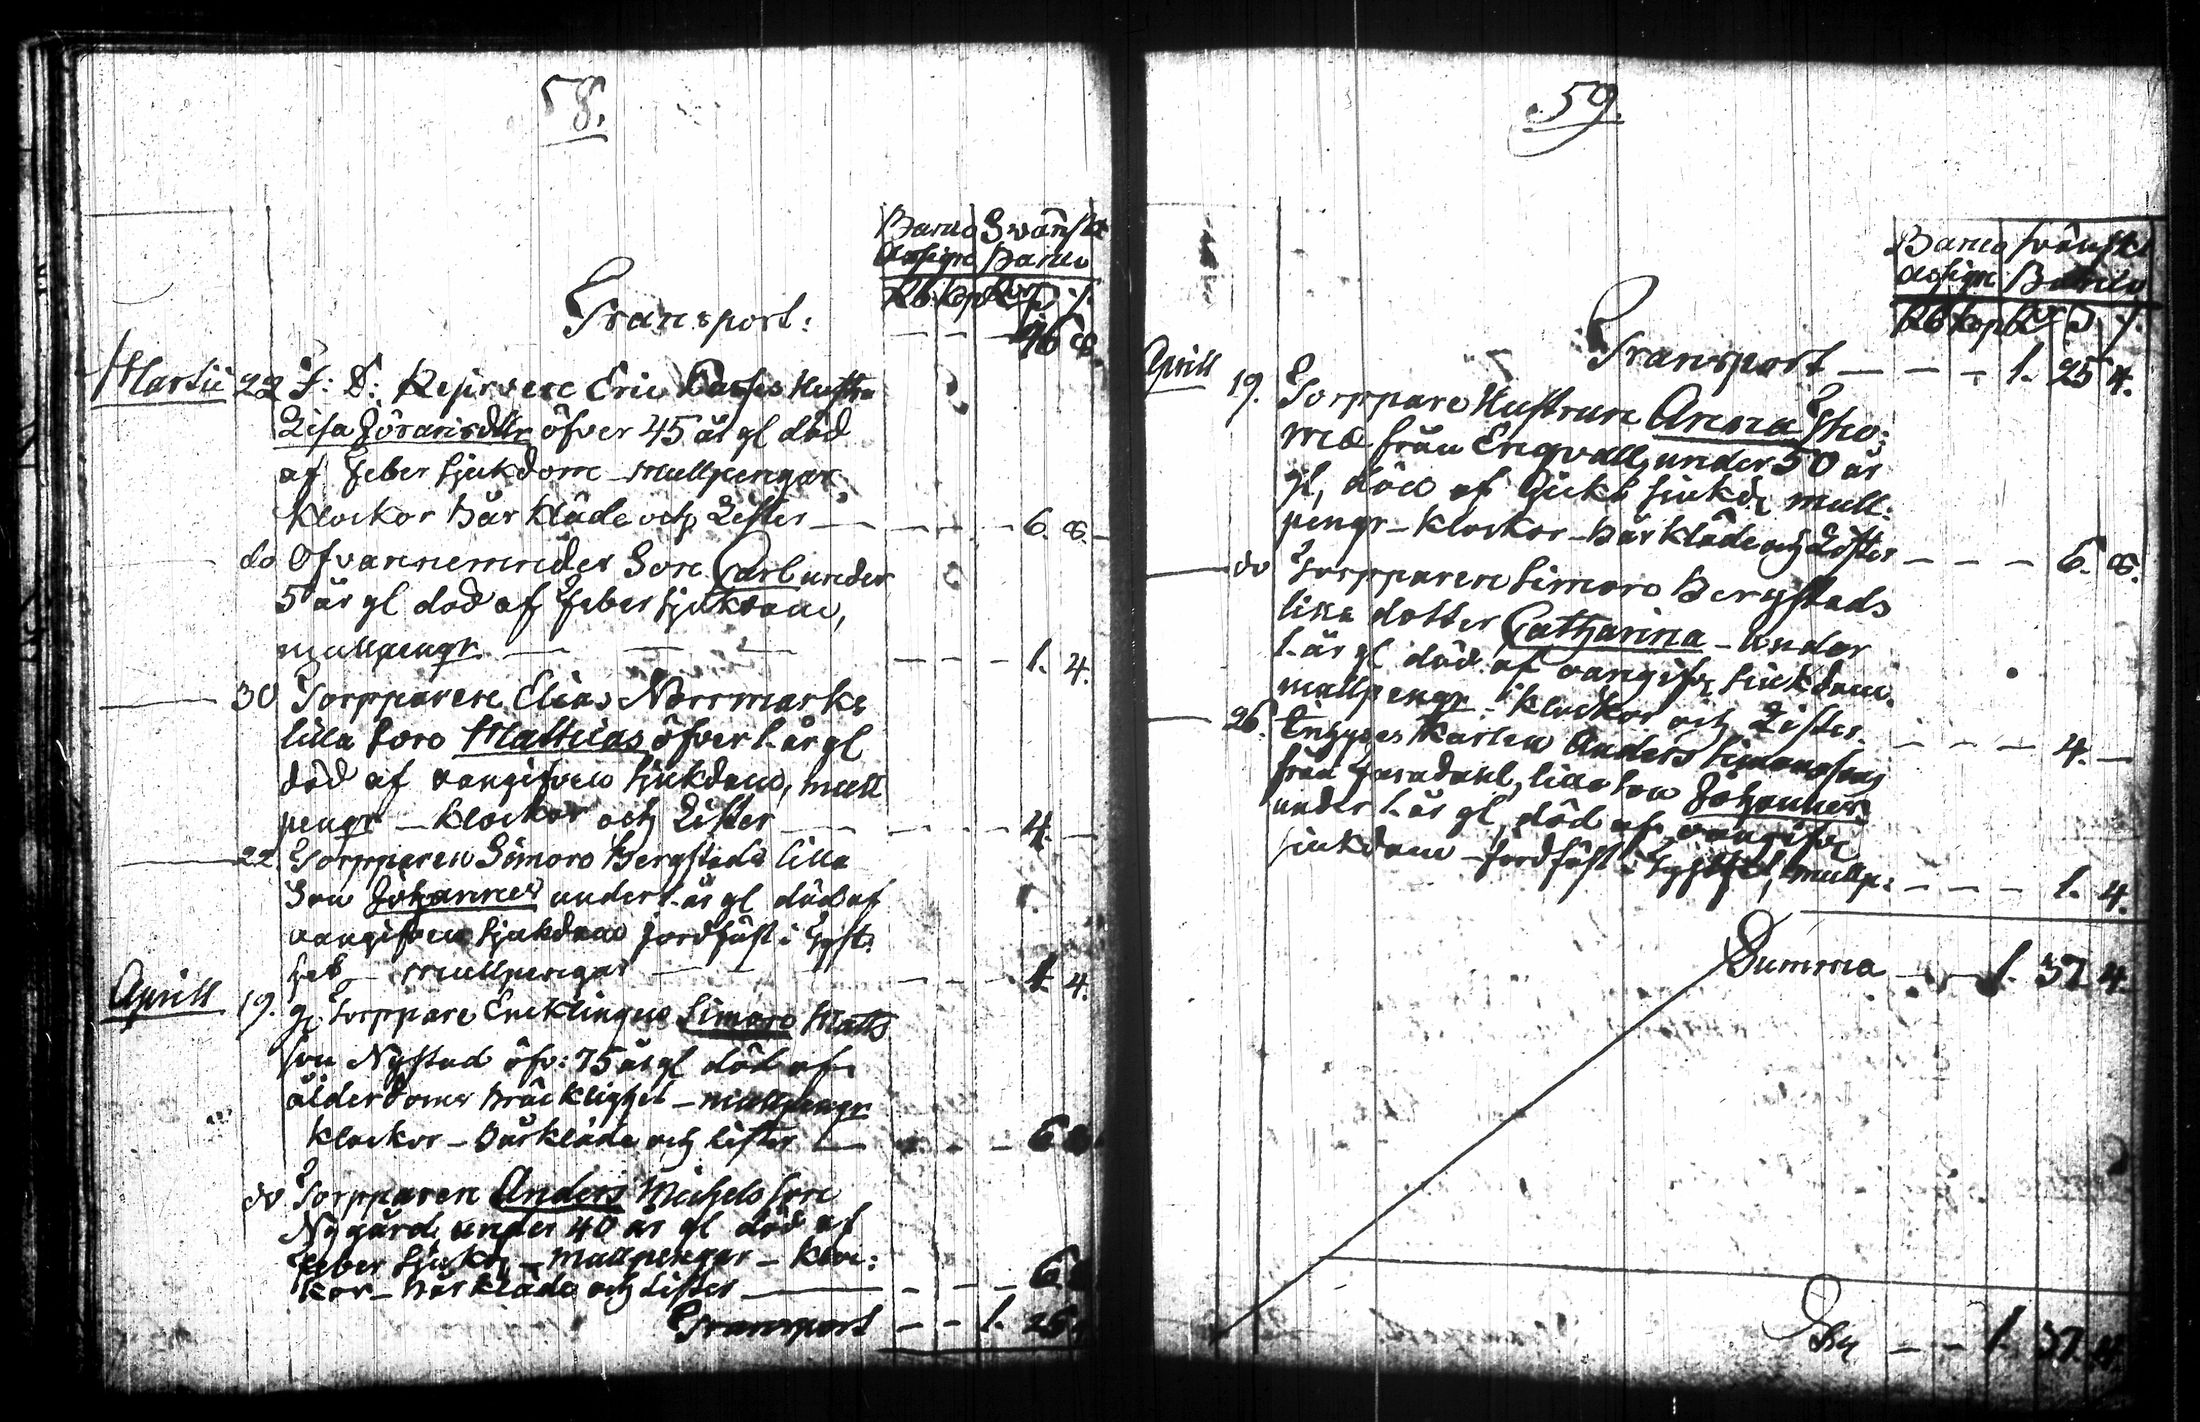 58.
Banco Svänsk
Assign Banco
Rb kop Rdr s. r.
Transport: 46 8.
Martii 22 F: D: Eric Hustru
Lisa Jöransdttr öfver 45 år gl död
af feber sjukdom – mullpengar
klockor bår kläde och Lister – 6. 8.
do Ofvannemndes Son Carl under
5 år gl död af feber sjukdom,
mullpengr – 1. 4.
30 Torpparen Elias Norrmarks
lilla son Mattias öfver 1. år gl
död af oangifven sjukdom, mull
pengr – klockor och Lister 4. –
22. Torpparen Simon Bergstads lilla
Son Johannes under 1. år gl död af
oangifven sjukdom jordfäst i
– mullpengar 1. 4.
Aprill 19. gl. torppare Encklingen Simon Matts
son Nystad öfv: 75 år gl död af
ålderdoms bräcklighet – mullpengr
klockor – bårkläde och Lister – 6 8
do Torpparen Anders Michelsson
Nygård, under 40 år gl död af
feber sjukd, – mullpengar – kloc:
kor – bår kläde och Lister – 6 8
Transport – 1. 25 4
59.
Banco svänsk
assign Banco
Rb kop Rdr s. r.
Transport – 1. 25 4.
Aprill 19. Torppare Hustrun Anna Tho:
mæ från Engvall, under 50 år
gl, döde af sjukd, mull:
pengr – klockor – bår kläde och Lister – 6. 8.
do Torpparen Simon Bergstads
lilla dotter Catharina – under
1. år gl död af oangifv sjukdom.
mullpengr – klockor och Lister. 4. –
26. Inhyses Karlen Anders Simonssons
från lilla son Johannes
under 1. år gl, död af oangifv
sjukdom – jordfäst i mullp: – 1. 4.
Summa – 1. 37 4.
1. 37. 4